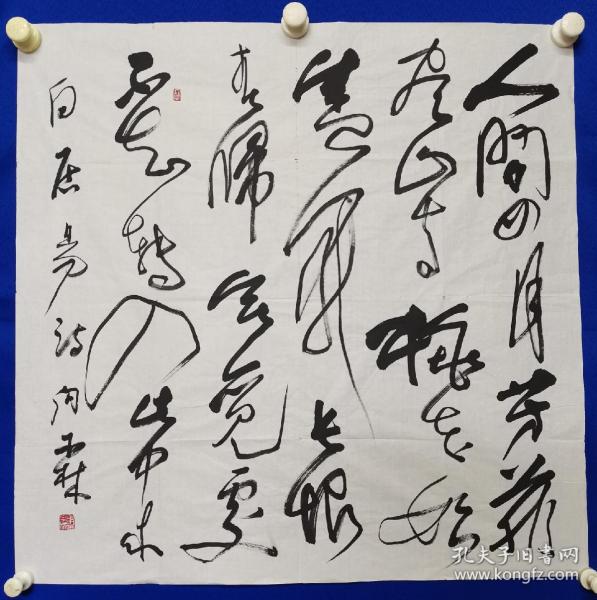 人間四月芳菲
尽山寺桃花始
盛開長恨
春歸無覓處
不知轉入此中来
白居易詩
孔夫子旧书网
www.kongfz.com